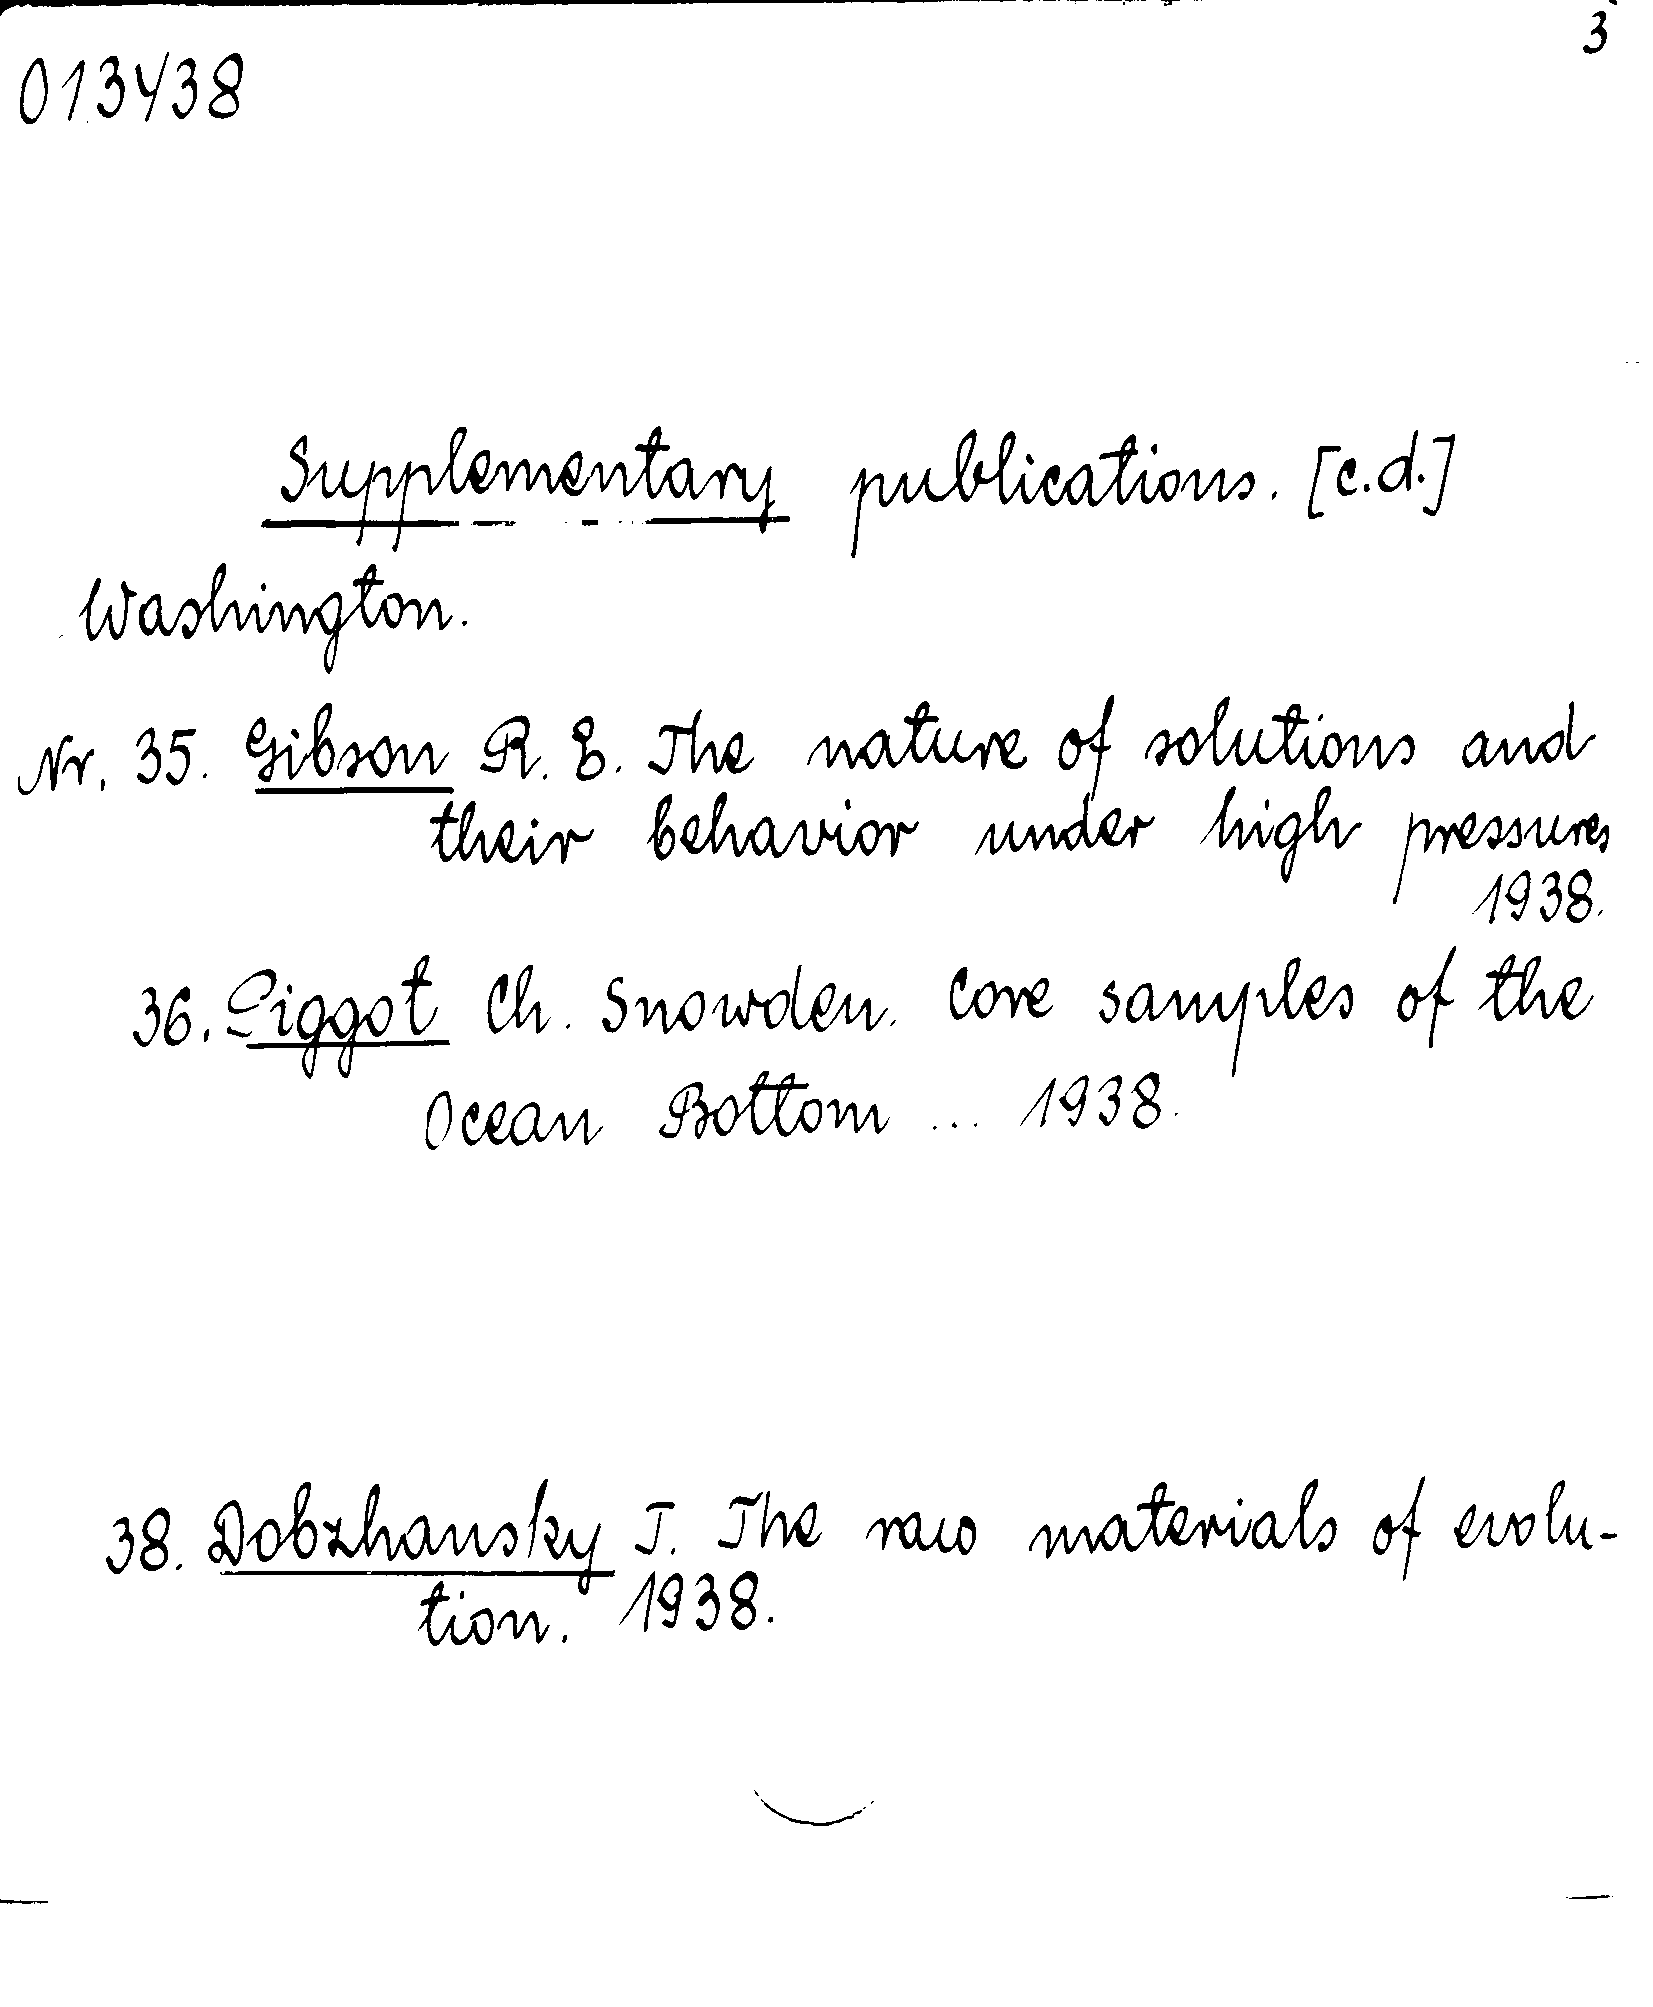 3
013438
Supplementary publications. [c.d.]
Washington.
Nr. 35. Gibson R. E. The nature of solutions and
their behavior under high pressures
1938.
36. Piggot Ch. Snowden. Core samples of the
Ocean Bottom ... 1938.
38. Dobzhansky T. The raw materials of evolu-
tion. 1938.